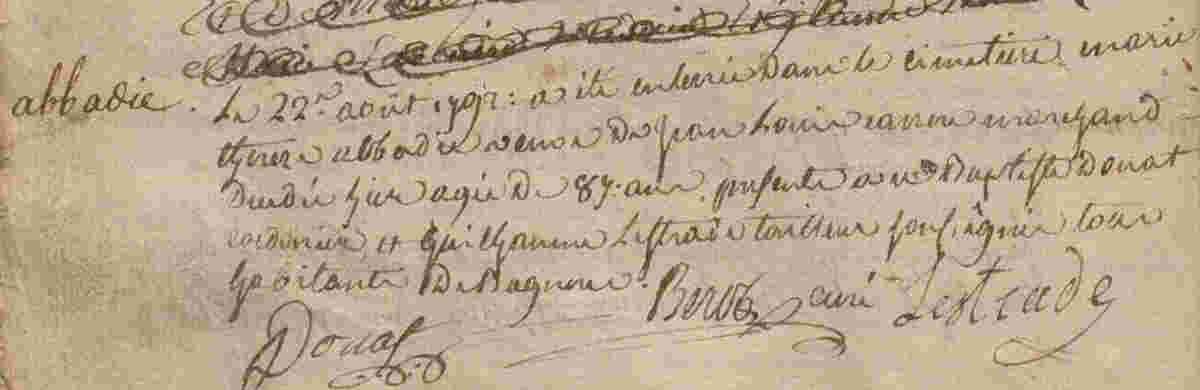 abbadie.
Le 22.e août 1792: a été enterrée dans le cimetière marie
therese abbadie veuve de jean Louis marchand
agée de 87. ans. presents a Baptiste Donat
cordonier, et Guilhaume Lestrade tailleur soussignés tous
habitants de Bagneres.
curé
Lestrade
Donat